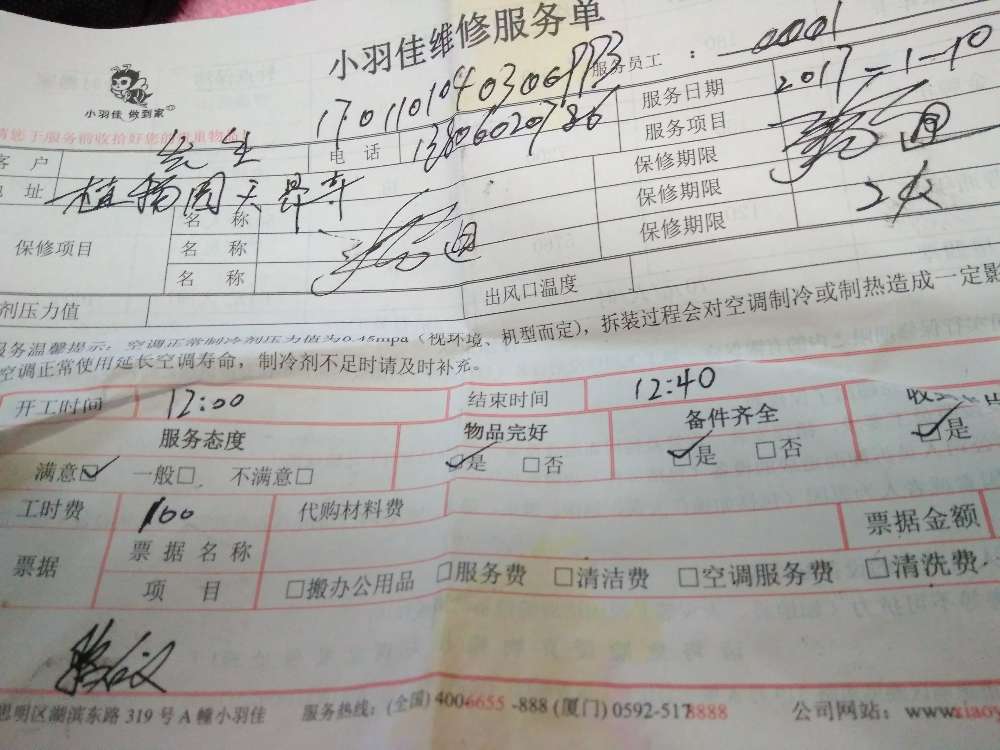 小羽佳维修服务单
小羽佳 做到家
服务员工 : 0001
1701101040306PP3
服务日期 2017-1-10
客户 电话 13806020786 服务项目
地址 植物园天界寺 保修期限
保修项目 名称 保修期限 2次
名称 保修期限
名称
剂压力值 出风口温度
服务温馨提示: 空调正常制冷剂压力值为0.45mpa (视环境、机型而定), 拆装过程会对空调制冷或制热造成一定影
空调正常使用延长空调寿命, 制冷剂不足时请及时补充。
开工时间 12:00 结束时间 12:40
服务态度 物品完好 备件齐全
满意☑ 一般□ 不满意□ ☑是 □否 ☑是 □否 ☑是
工时费 100 代购材料费
票据 票据名称 票据金额
项目 □搬办公用品 □服务费 □清洁费 □空调服务费 □清洗费
思明区湖滨东路 319 号 A 幢小羽佳 服务热线: (全国) 4006655 -888 (厦门) 0592-5178888 公司网站: www.xiaoy